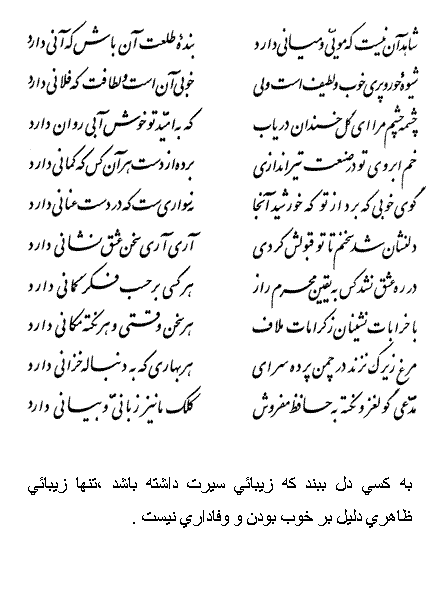 شاهد آن نیست که مویی و میانی دارد بندهٔ طلعت آن باش که آنی دارد
شیوهٔ حور و پری خوب و لطیف است ولی خوبی آن است و لطافت که فلانی دارد
چشمهٔ چشم مرا ای گل خندان دریاب که به امید تو خوش آبی روان دارد
خم ابروی تو در صنعت تیراندازی برده از دست هر آن کس که کمانی دارد
گوی خوبی که برد از تو که خورشید آنجا نه سواری ست که در دست عنانی دارد
دلنشان شد سخنم تا تو قبولش کردی آری آری سخن عشق نشانی دارد
در ره عشق نشد کس به یقین محرم راز هر کسی بر حسب فکر گمانی دارد
با خرابات نشینان ز کرامات ملاف هر سخن وقتی و هر نکته مکانی دارد
مرغ زیرک نزند در چمن پرده سرای هر بهاری که به دنباله خزانی دارد
مدعی گو لغز و نکته به حافظ مفروش کلک ما نیز زبانی و بیانی دارد
به كسي دل ببند كه زيبائي سيرت داشته باشد ،تنها زيبائي
ظاهري دليل بر خوب بودن و وفاداري نيست .